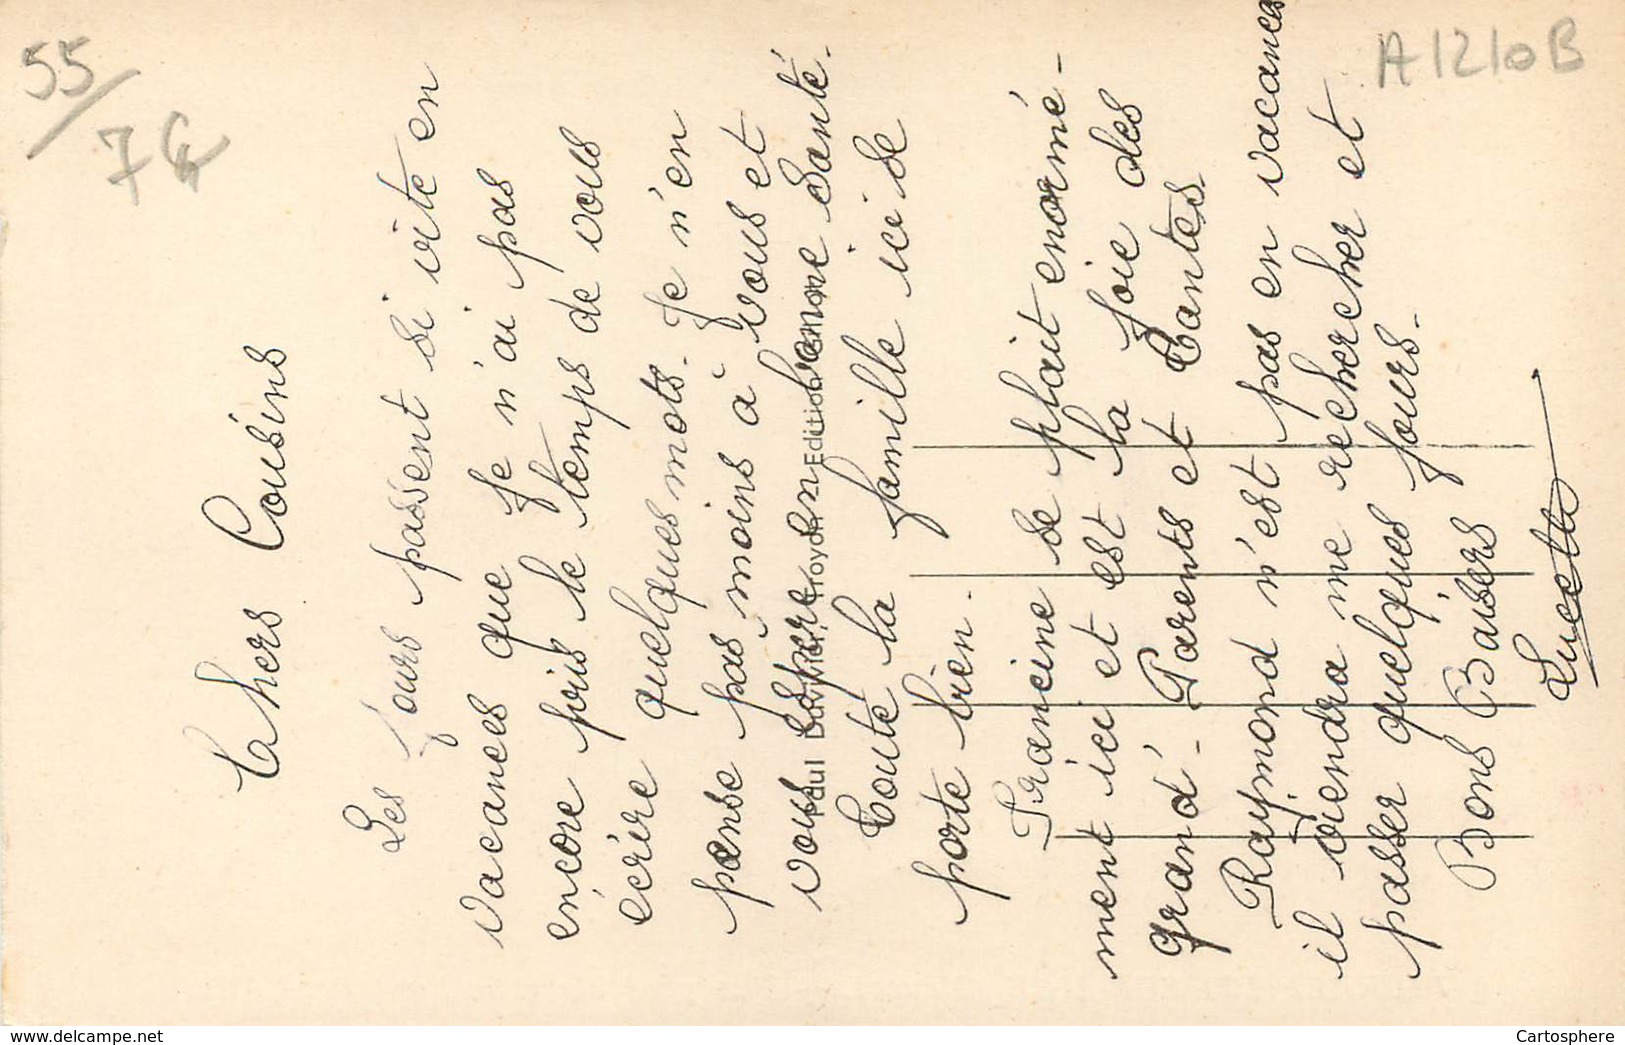 55/
7€
A1210B
Chers Cousins
Les jours passent si vite en
vacances que je n'ai pas
encore pris le temps de vous
écrire quelques mots. Je n'en
pense pas moins à vous et
vous espère en bonne santé.
Toute la famille ici se
porte bien.
Francine se plait enormé-
ment ici et est la joie des
grand'-Parents et Tantes.
Raymond n'est pas en vacances
il viendra me rechercher et
passer quelques jours.
Bons Baisers
Lucette
Edition
www.delcampe.net
Cartosphere